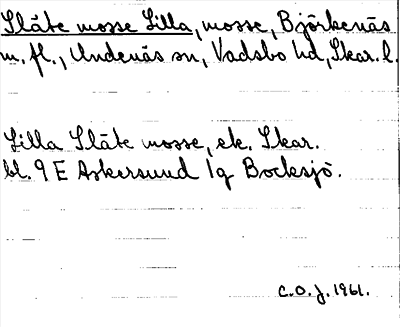 Släte mosse Lilla, mosse, Björkenäs
m. fl., Undenäs sn, Vadsbo hd, Skar. l.
Lilla Släte mosse, ek. Skar.
bl. 9 E Askersund 1g Bocksjö.
C.O.J. 1961.